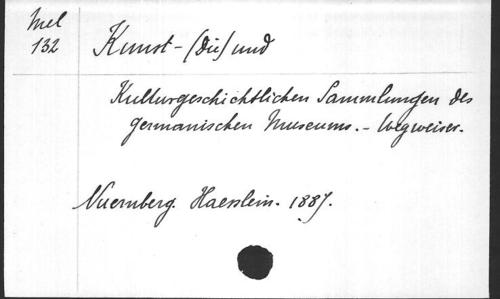 Mel
132
Kunst- (Die) und
Kulturgeschichtlichen Sammlungen des
germanischen Museums. - Wegweiser.
Nuernberg. Haesslein. 1887.